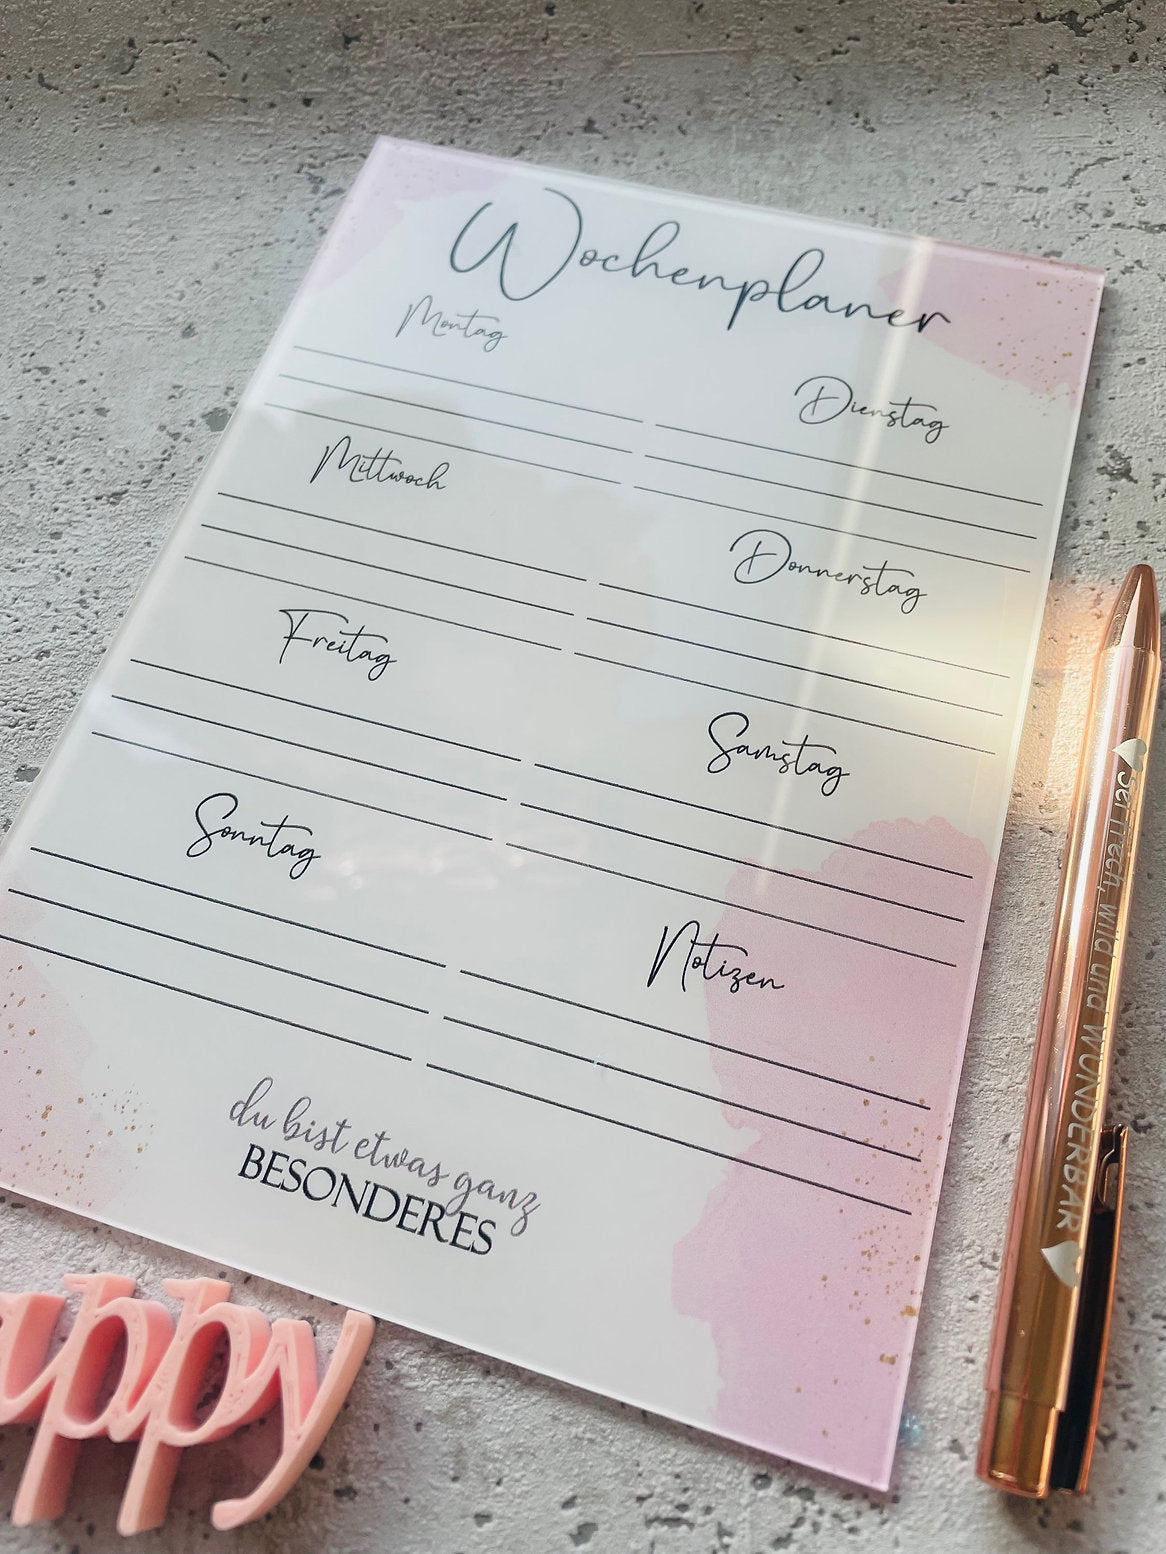 Wochenplaner
Montag
Dienstag
Mittwoch
Donnerstag
Freitag
Samstag
Sonntag
Notizen
du bist etwas ganz
BESONDERES
Sei frech, wild und WUNDERBAR
appy